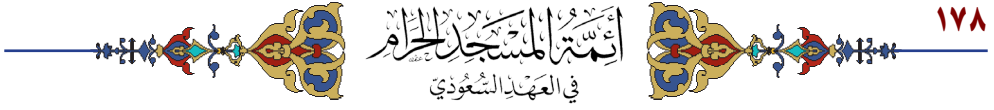 ١٧٨
أَئِمَّةُ المَسْجِدِ الحَرَامِ
فِي العَهْدِ السُّعُودِيّ